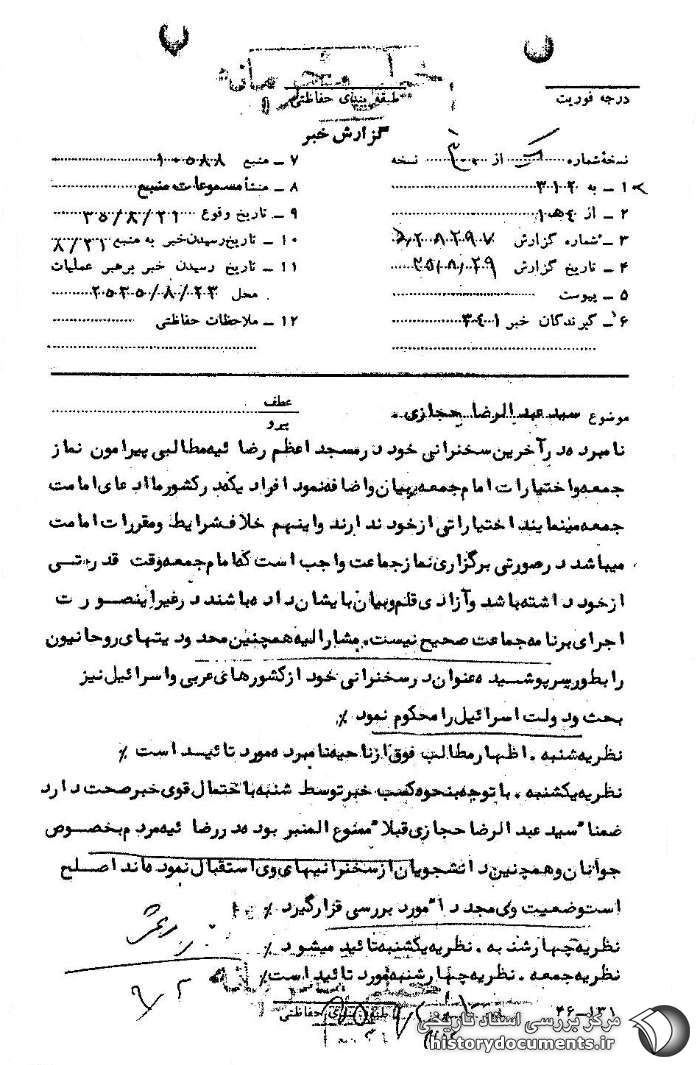 خیلی محرمانه
درجه فوریت
طبقه بندی حفاظتی
گزارش خبر
نسخه شماره از نسخه
۱ ـ به ۳۱۲
۲ ـ از ۱۵۴
۳ ـ شماره گزارش
۴ ـ تاریخ گزارش ۳۵/۸/۲۹
۵ ـ پیوست
۶ ـ گیرندگان خبر ۳۴۱
۷ ـ منبع ۱۰۵۸۸
۸ ـ منشأ مسموعات منبع
۹ ـ تاریخ وقوع ۳۵/۸/۲۱
۱۰ ـ تاریخ رسیدن خبر به منبع ۸/۲۱
۱۱ ـ تاریخ رسیدن خبر برهبر عملیات
محل ۲۵۳۵/۸/۲۳
۱۲ ـ ملاحظات حفاظتی
موضوع سید عبدالرضا حجازی . عطف
پیرو
نامبرده در آخرین سخنرانی خود در مسجد اعظم رضائیه مطالبی پیرامون نماز
جمعه و اختیارات امام جمعه بیان و اضافه نمود افرادیکه در کشور ما ادعای امامت
جمعه مینمایند اختیاراتی از خود ندارند و اینهم خلاف شرایط و مقررات امامت
میباشد در صورتی برگزاری نماز جماعت واجب است که امام جمعه وقت قدرتی
از خود داشته باشد و آزادی قلم و بیان بایشان داده باشند در غیر اینصورت
اجرای برنامه جماعت صحیح نیست. مشارالیه همچنین محدودیتهای روحانیون
را بطور سرپوشیده عنوان در سخنرانی خود از کشورهای عربی و اسرائیل نیز
بحث و دولت اسرائیل را محکوم نمود ٪
نظریه شنبه . اظهار مطالب فوق از ناحیه نامبرده مورد تائید است ٪
نظریه یکشنبه . با توجه بنحوه کسب خبر توسط شنبه باحتمال قوی خبر صحت دارد
ضمنا" سید عبدالرضا حجازی قبلا" ممنوع المنبر بوده در رضائیه مردم بخصوص
جوانان و همچنین دانشجویان از سخنرانیهای وی استقبال نموده اند اصلح
است وضعیت وی مجددا" مورد بررسی قرار گیرد ٪
نظریه چهارشنبه . نظریه یکشنبه تائید میشود ٪
نظریه جمعه . نظریه چهارشنبه مورد تائید است ٪
خیلی محرمانه
طبقه بندی حفاظتی
۴۶-۱۳۱
مرکز بررسی اسناد تاریخی
historydocuments.ir